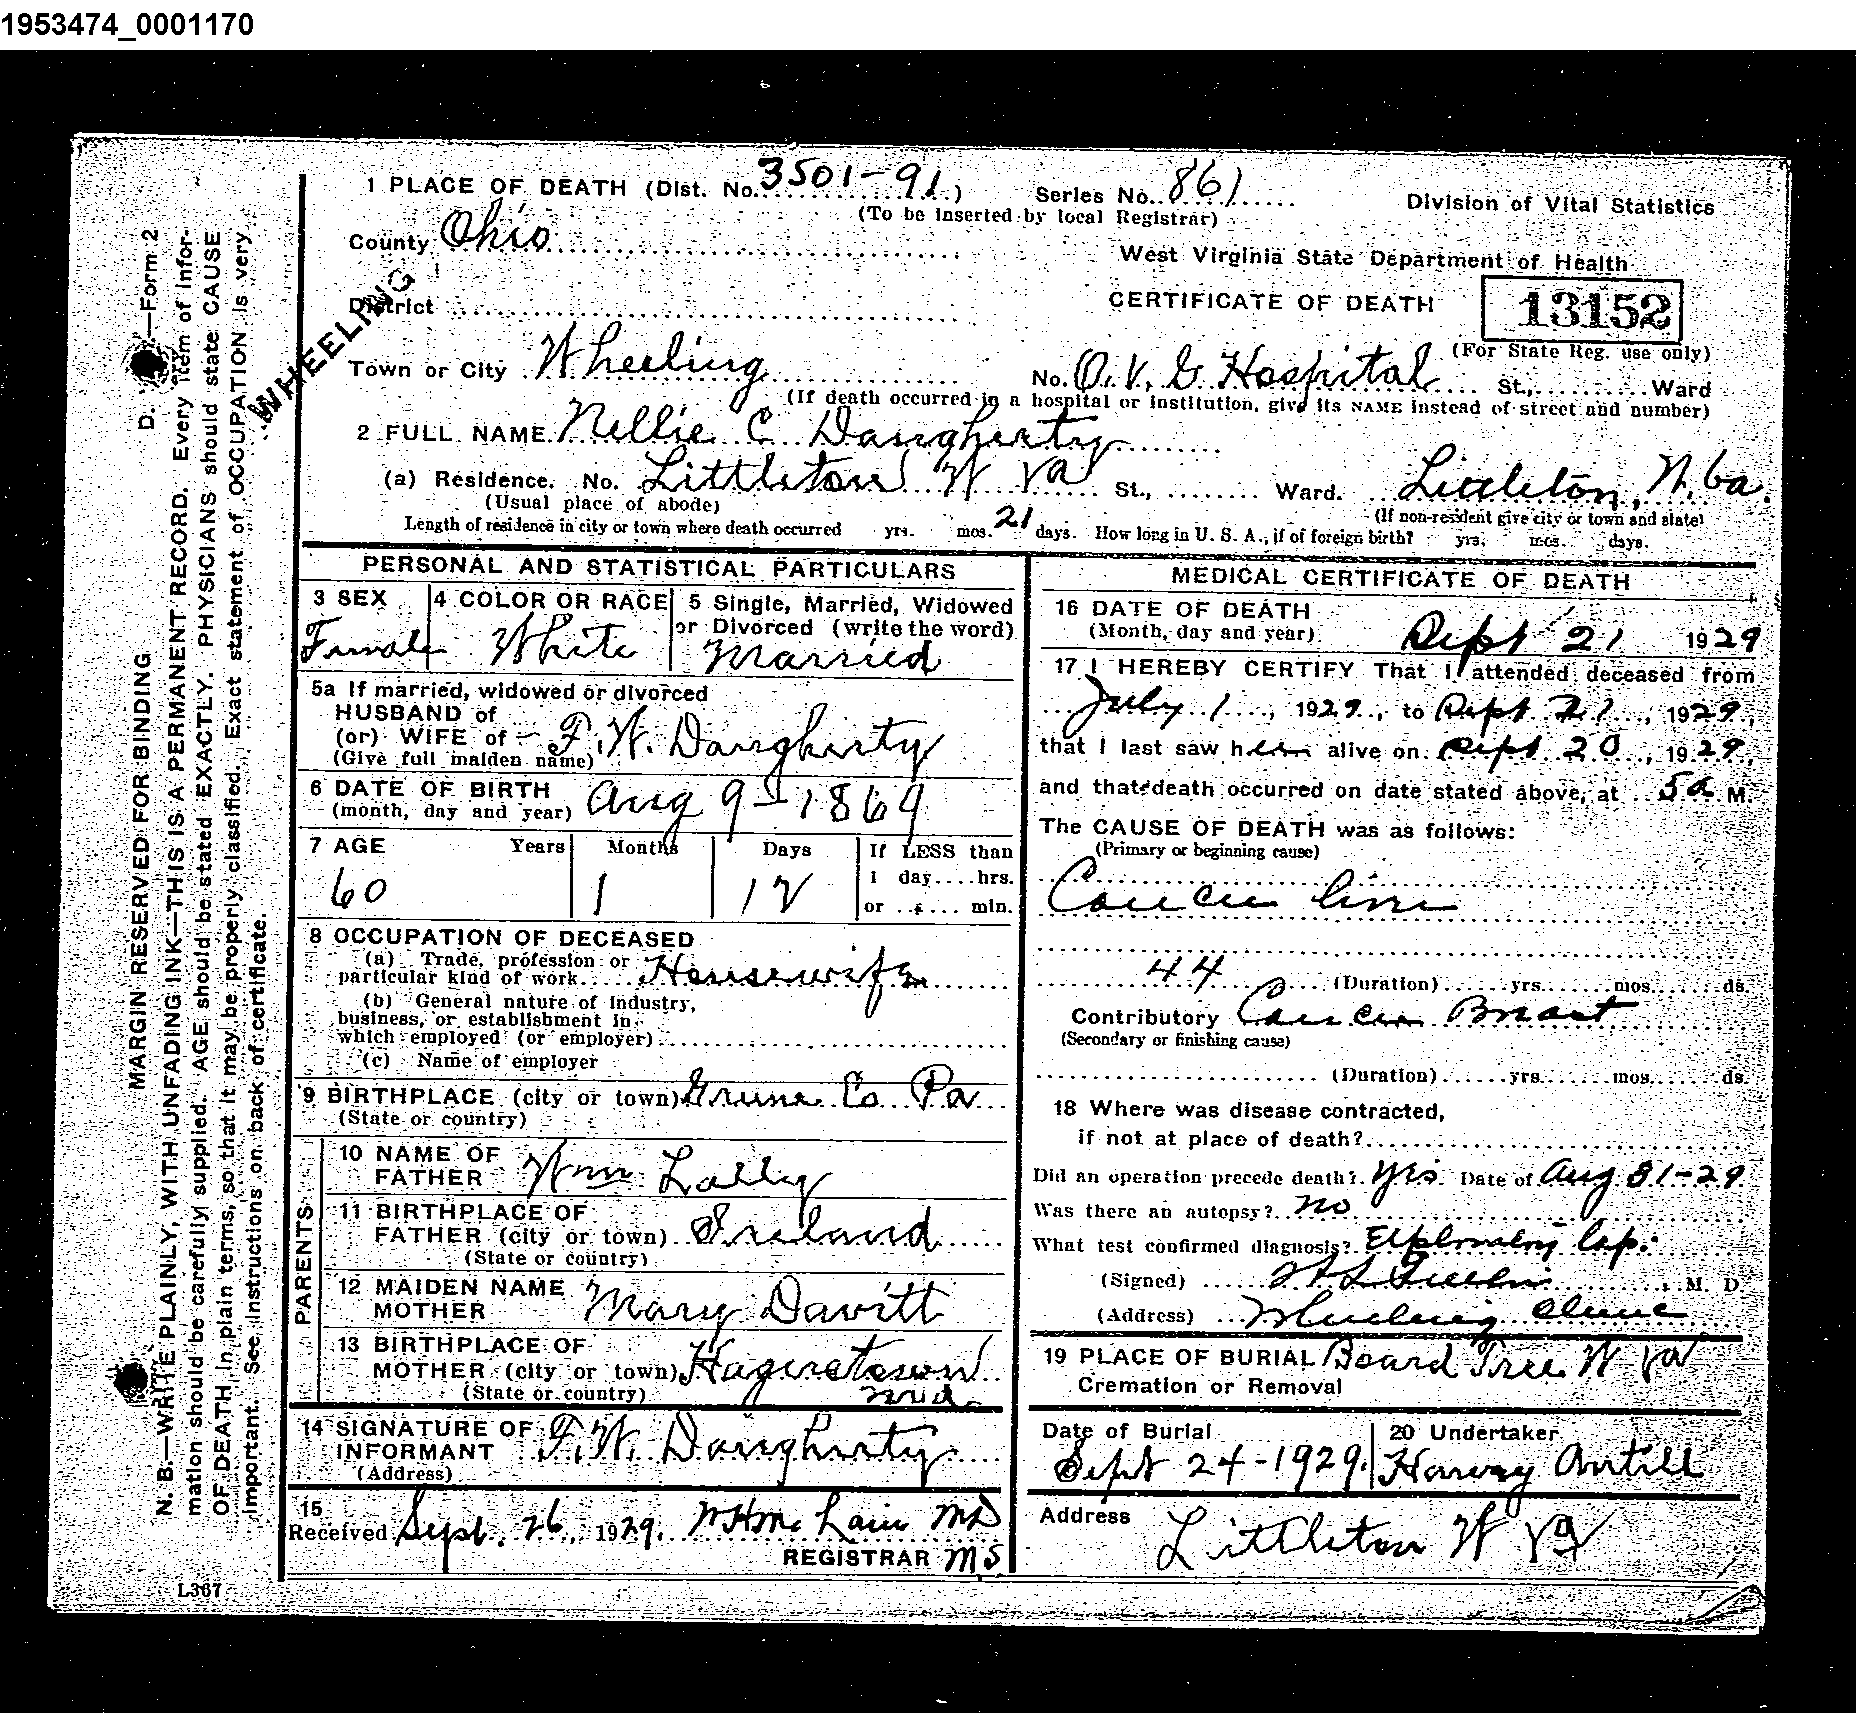 1953474_0001170
1 PLACE OF DEATH (Dist. No. 3501-91)
Series No. 861
(To be inserted by local Registrar)
Division of Vital Statistics
County Ohio
West Virginia State Department of Health
WHEELING
District
CERTIFICATE OF DEATH
13152
(For State Reg. use only)
Town or City Wheeling
No. O.V.G Hospital St., Ward
(If death occurred in a hospital or institution, give its NAME instead of street and number)
2 FULL NAME Nellie C Daugherty
(a) Residence. No. Littleton W Va St., Ward. Littleton, W. Va.
(Usual place of abode)
(If non-resident give city or town and state)
Length of residence in city or town where death occurred yrs. mos. 21 days. How long in U. S. A., if of foreign birth? yrs. mos. days.
PERSONAL AND STATISTICAL PARTICULARS
3 SEX
Female
4 COLOR OR RACE
White
5 Single, Married, Widowed
or Divorced (write the word)
Married
5a If married, widowed or divorced
HUSBAND of
(or) WIFE of F. W. Daugherty
(Give full maiden name)
6 DATE OF BIRTH Aug 9-1869
(month, day and year)
7 AGE Years Months Days If LESS than
1 day....hrs.
60 1 12 or ..... min.
8 OCCUPATION OF DECEASED
(a) Trade, profession or
particular kind of work Housewife
(b) General nature of industry,
business, or establishment in
which employed (or employer)
(c) Name of employer
9 BIRTHPLACE (city or town) Greene Co Pa
(State or country)
PARENTS
10 NAME OF
FATHER Wm Lally
11 BIRTHPLACE OF
FATHER (city or town) Ireland
(State or country)
12 MAIDEN NAME
MOTHER Mary Davitt
13 BIRTHPLACE OF
MOTHER (city or town) Hagerstown
(State or country) Md.
14 SIGNATURE OF
INFORMANT F. W. Daugherty
(Address)
15
Received Sept. 26, 1929. W H Mc Lain MD
REGISTRAR M.S.
MEDICAL CERTIFICATE OF DEATH
16 DATE OF DEATH
(Month, day and year) Sept 21 1929
17 I HEREBY CERTIFY That I attended deceased from
July 1, 1929, to Sept 21, 1929,
that I last saw her alive on Sept 20, 1929,
and that death occurred on date stated above, at 5a M.
The CAUSE OF DEATH was as follows:
(Primary or beginning cause)
Cancer liver
44
(Duration) yrs. mos. ds.
Contributory Cancer Breast
(Secondary or finishing cause)
(Duration) yrs. mos. ds.
18 Where was disease contracted,
if not at place of death?
Did an operation precede death? yes. Date of Aug 31-29
Was there an autopsy? no
What test confirmed diagnosis? Exploratory lap.
(Signed) M. D.
(Address) Wheeling Clinic
19 PLACE OF BURIAL Board Tree W Va
Cremation or Removal
Date of Burial
Sept 24-1929.
20 Undertaker
Harvey Antill
Address
Littleton W Va
D. —Form 2
MARGIN RESERVED FOR BINDING
N. B.—WRITE PLAINLY, WITH UNFADING INK—THIS IS A PERMANENT RECORD. Every item of infor-
mation should be carefully supplied. AGE should be stated EXACTLY. PHYSICIANS should state CAUSE
OF DEATH in plain terms, so that it may be properly classified. Exact statement of OCCUPATION is very
important. See instructions on back of certificate.
L367